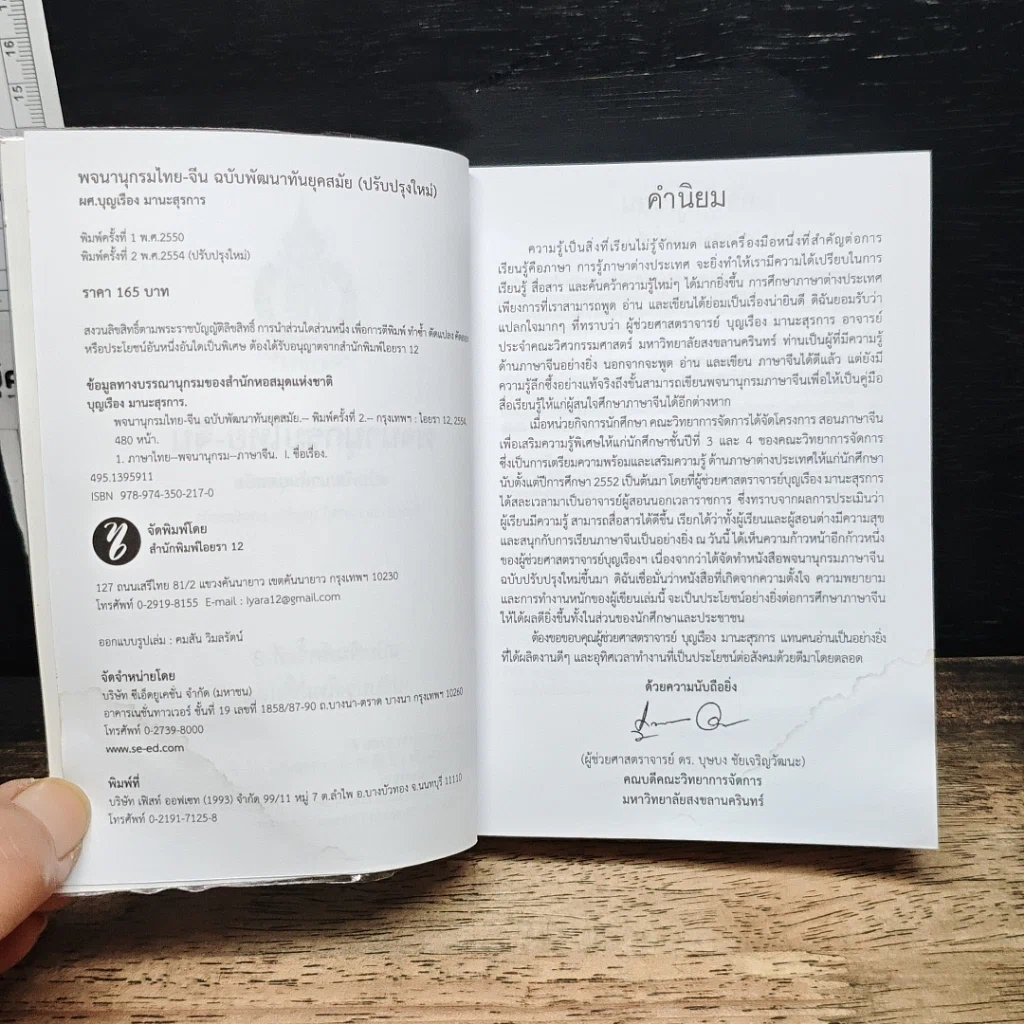 พจนานุกรมไทย-จีน ฉบับพัฒนาทันยุคสมัย (ปรับปรุงใหม่)
ผศ.บุญเรือง มานะสุรการ
พิมพ์ครั้งที่ 1 พ.ศ.2550
พิมพ์ครั้งที่ 2 พ.ศ.2554 (ปรับปรุงใหม่)
ราคา 165 บาท
สงวนลิขสิทธิ์ตามพระราชบัญญัติลิขสิทธิ์ การนำส่วนใดส่วนหนึ่ง เพื่อการตีพิมพ์ ทำซ้ำ ดัดแปลง
หรือประโยชน์อันหนึ่งอันใดเป็นพิเศษ ต้องได้รับอนุญาตจากสำนักพิมพ์ไอยรา 12
ข้อมูลทางบรรณานุกรมของสำนักหอสมุดแห่งชาติ
บุญเรือง มานะสุรการ.
พจนานุกรมไทย-จีน ฉบับพัฒนาทันยุคสมัย.-- พิมพ์ครั้งที่ 2.-- กรุงเทพฯ : ไอยรา 12, 2554
480 หน้า.
1. ภาษาไทย--พจนานุกรม--ภาษาจีน. I. ชื่อเรื่อง.
495.1395911
ISBN 978-974-350-217-0
จัดพิมพ์โดย
สำนักพิมพ์ไอยรา 12
127 ถนนเสรีไทย 81/2 แขวงคันนายาว เขตคันนายาว กรุงเทพฯ 10230
โทรศัพท์ 0-2919-8155 E-mail : Iyara12@gmail.com
ออกแบบรูปเล่ม : คมสัน วิมลรัตน์
จัดจำหน่ายโดย
บริษัท ซีเอ็ดยูเคชั่น จำกัด (มหาชน)
อาคารเนชั่นทาวเวอร์ ชั้นที่ 19 เลขที่ 1858/87-90 ถ.บางนา-ตราด บางนา กรุงเทพฯ 10260
โทรศัพท์ 0-2739-8000
www.se-ed.com
พิมพ์ที่
บริษัท เฟิสท์ ออฟเซท (1993) จำกัด 99/11 หมู่ 7 ต.ลำโพ อ.บางบัวทอง จ.นนทบุรี 11110
โทรศัพท์ 0-2191-7125-8
คำนิยม
ความรู้เป็นสิ่งที่เรียนไม่รู้จักหมด และเครื่องมือหนึ่งที่สำคัญต่อการ
เรียนรู้คือภาษา การรู้ภาษาต่างประเทศ จะยิ่งทำให้เรามีความได้เปรียบในการ
เรียนรู้ สื่อสาร และค้นคว้าความรู้ใหม่ๆ ได้มากยิ่งขึ้น การศึกษาภาษาต่างประเทศ
เพียงการที่เราสามารถพูด อ่าน และเขียนได้ย่อมเป็นเรื่องน่ายินดี ดิฉันยอมรับว่า
แปลกใจมากๆ ที่ทราบว่า ผู้ช่วยศาสตราจารย์ บุญเรือง มานะสุรการ อาจารย์
ประจำคณะวิศวกรรมศาสตร์ มหาวิทยาลัยสงขลานครินทร์ ท่านเป็นผู้ที่มีความรู้
ด้านภาษาจีนอย่างยิ่ง นอกจากจะพูด อ่าน และเขียน ภาษาจีนได้ดีแล้ว แต่ยังมี
ความรู้ลึกซึ้งอย่างแท้จริงถึงขั้นสามารถเขียนพจนานุกรมภาษาจีนเพื่อให้เป็นคู่มือ
สื่อเรียนรู้ให้แก่ผู้สนใจศึกษาภาษาจีนได้อีกต่างหาก
เมื่อหน่วยกิจการนักศึกษา คณะวิทยาการจัดการได้จัดโครงการ สอนภาษาจีน
เพื่อเสริมความรู้พิเศษให้แก่นักศึกษาชั้นปีที่ 3 และ 4 ของคณะวิทยาการจัดการ
ซึ่งเป็นการเตรียมความพร้อมและเสริมความรู้ ด้านภาษาต่างประเทศให้แก่นักศึกษา
นับตั้งแต่ปีการศึกษา 2552 เป็นต้นมา โดยที่ผู้ช่วยศาสตราจารย์บุญเรือง มานะสุรการ
ได้สละเวลามาเป็นอาจารย์ผู้สอนนอกเวลาราชการ ซึ่งทราบจากผลการประเมินว่า
ผู้เรียนมีความรู้ สามารถสื่อสารได้ดีขึ้น เรียกได้ว่าทั้งผู้เรียนและผู้สอนต่างมีความสุข
และสนุกกับการเรียนภาษาจีนเป็นอย่างยิ่ง ณ วันนี้ ได้เห็นความก้าวหน้าอีกก้าวหนึ่ง
ของผู้ช่วยศาสตราจารย์บุญเรืองฯ เนื่องจากว่าได้จัดทำหนังสือพจนานุกรมภาษาจีน
ฉบับปรับปรุงใหม่ขึ้นมา ดิฉันเชื่อมั่นว่าหนังสือที่เกิดจากความตั้งใจ ความพยายาม
และการทำงานหนักของผู้เขียนเล่มนี้ จะเป็นประโยชน์อย่างยิ่งต่อการศึกษาภาษาจีน
ให้ได้ผลดียิ่งขึ้นทั้งในส่วนของนักศึกษาและประชาชน
ต้องขอขอบคุณผู้ช่วยศาสตราจารย์ บุญเรือง มานะสุรการ แทนคนอ่านเป็นอย่างยิ่ง
ที่ได้ผลิตงานดีๆ และอุทิศเวลาทำงานที่เป็นประโยชน์ต่อสังคมด้วยดีมาโดยตลอด
ด้วยความนับถือยิ่ง
(ผู้ช่วยศาสตราจารย์ ดร. บุษบง ชัยเจริญวัฒนะ)
คณบดีคณะวิทยาการจัดการ
มหาวิทยาลัยสงขลานครินทร์
16
15